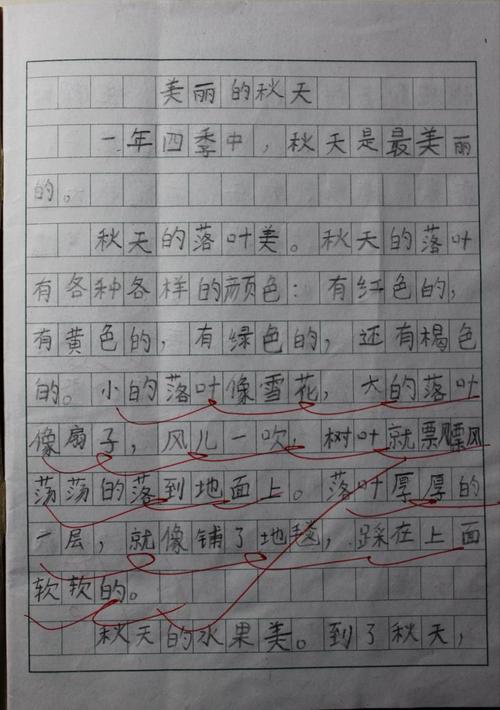 美丽的秋天
一年四季中，秋天是最美丽
的。
秋天的落叶美。秋天的落叶
有各种各样的颜色：有红色的，
有黄色的，有绿色的，还有褐色
的。小的落叶像雪花，大的落叶
像扇子，风儿一吹，树叶就飘飘
荡荡的落到地面上。落叶厚厚的
一层，就像铺了地毯，踩在上面
软软的。
秋天的水果美。到了秋天，